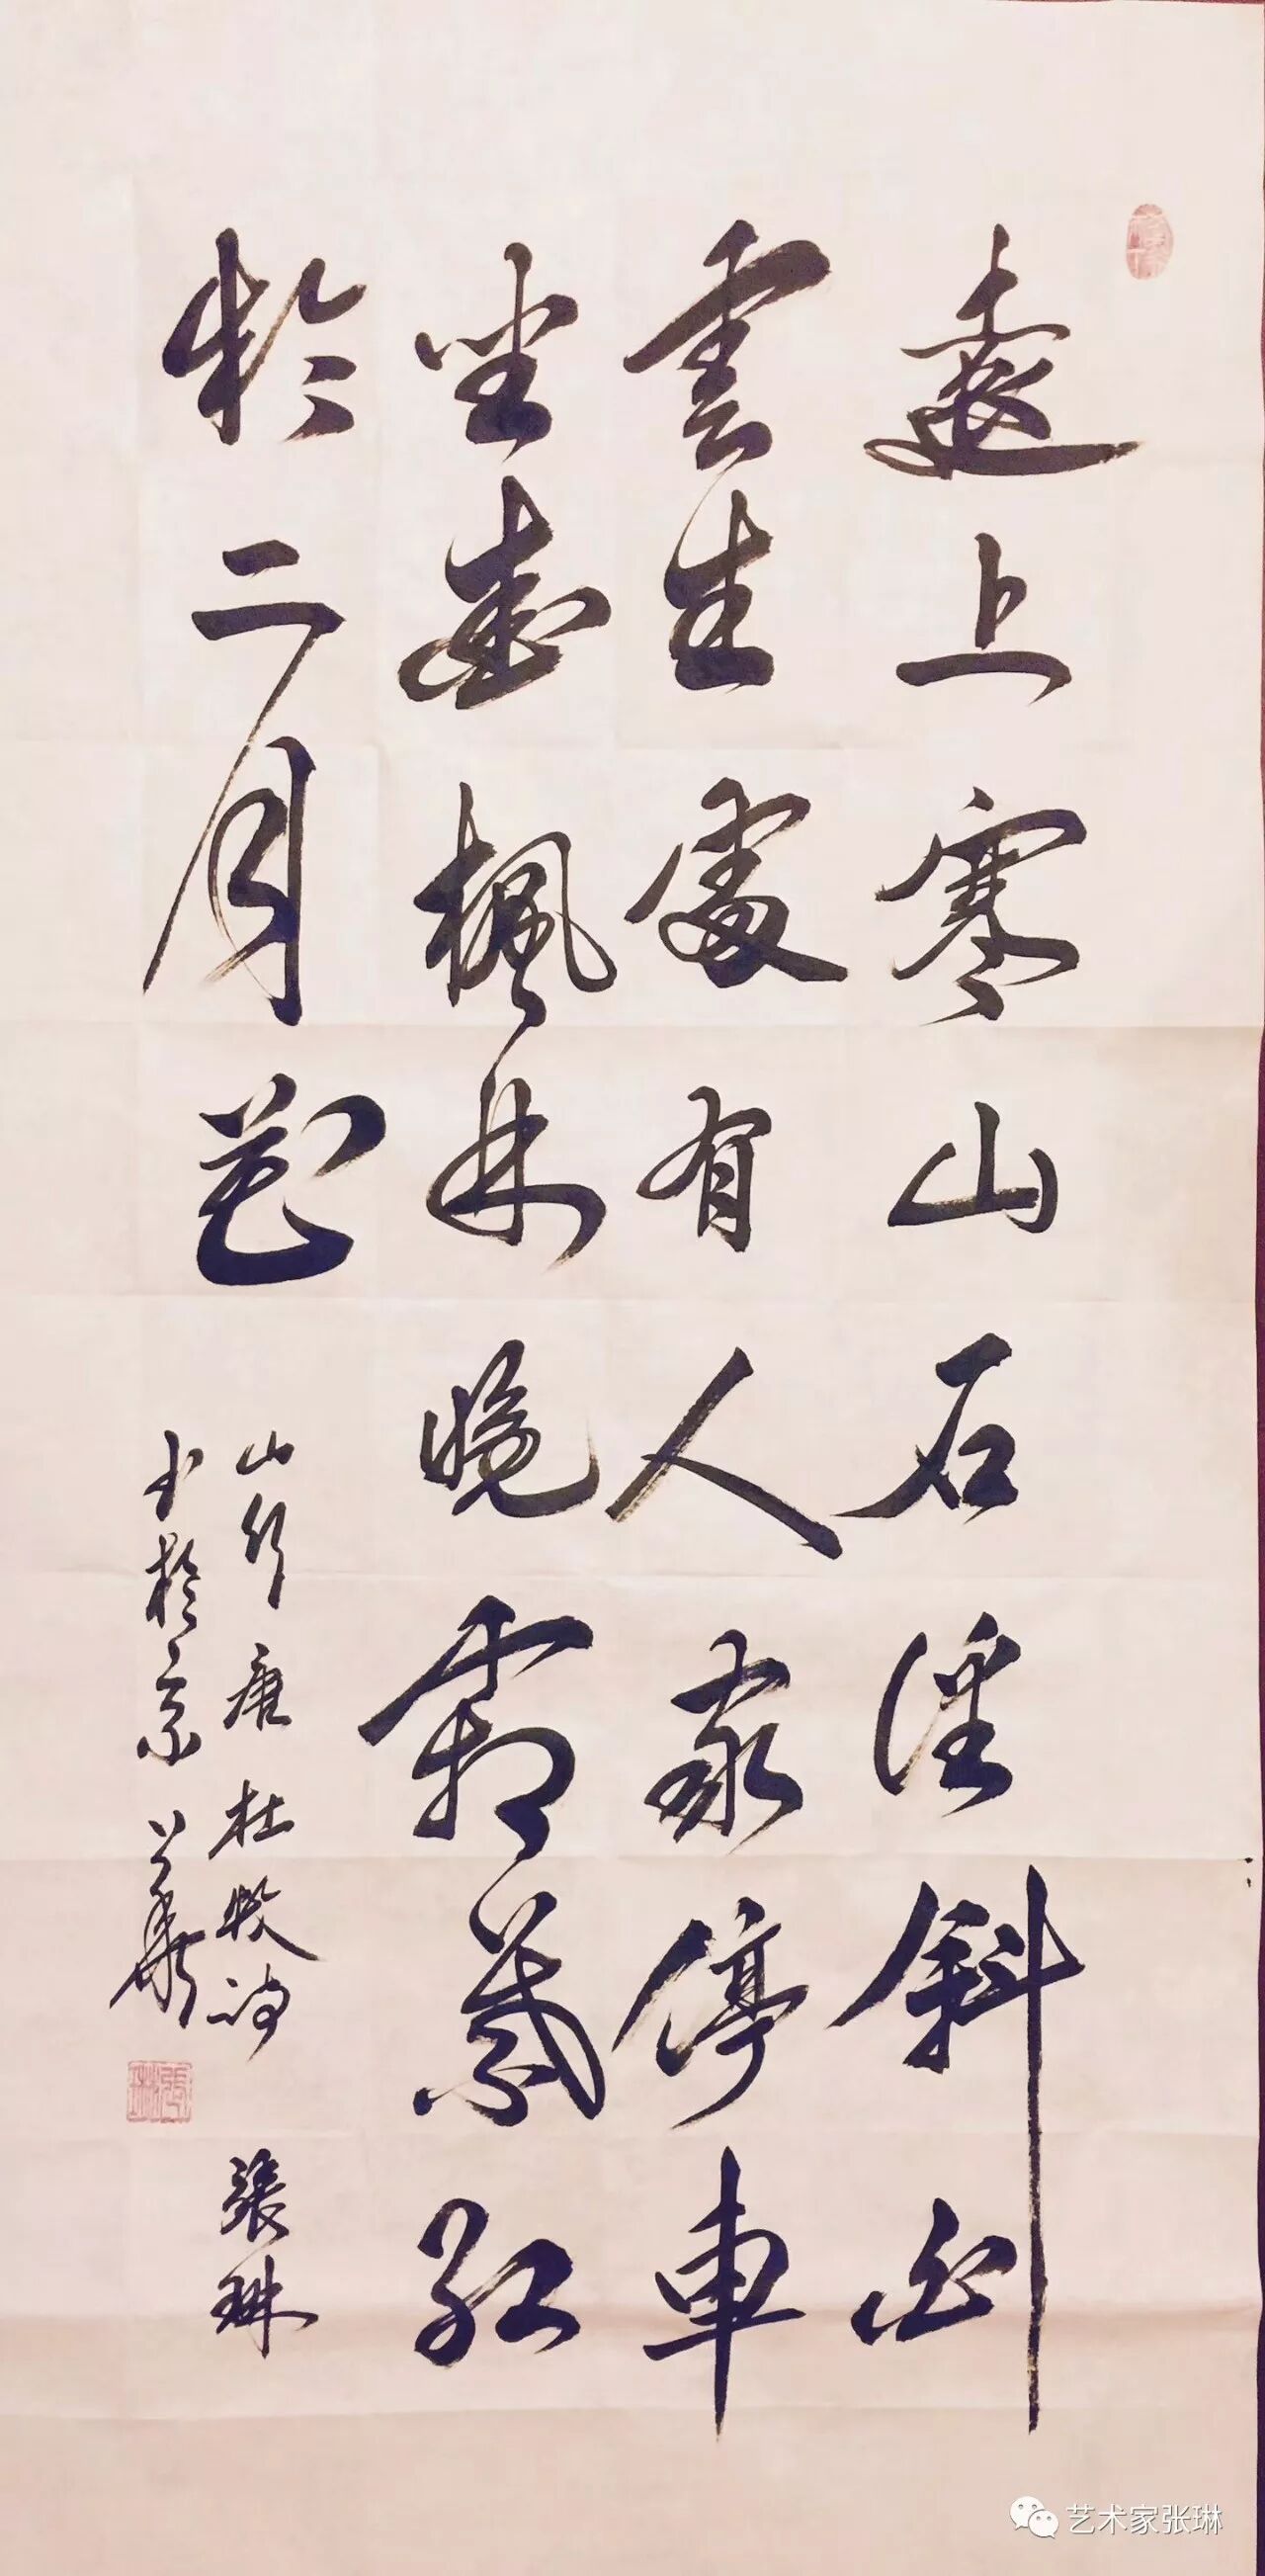 遠上寒山石徑斜白
雲生處有人家停車
坐愛楓林晚霜葉紅
於二月花
山行 唐 杜牧詩 張琳
书於京華
張琳
艺术家张琳